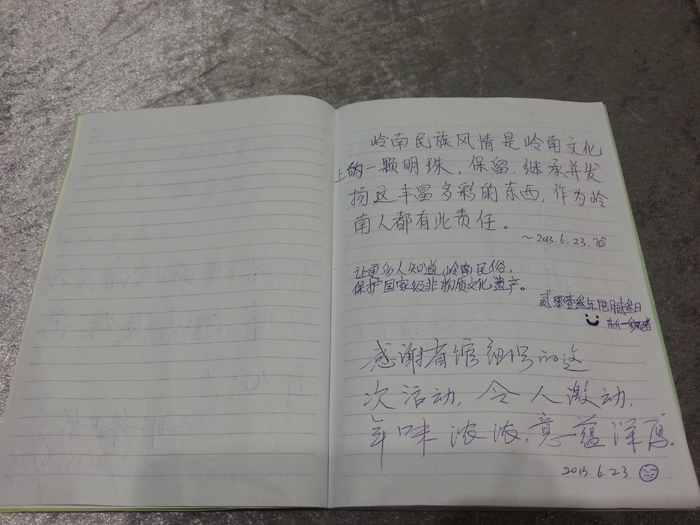 岭南民族风情是岭南文化
上的一颗明珠,保留、继承并发
扬这丰富多彩的东西,作为岭
南人都有此责任。
~2013.6.23.
让更多人知道岭南民俗,
保护国家级非物质文化遗产。
贰零壹叁年
感谢省馆组织的这
次活动,令人激动,
年味浓浓,意蕴深厚。
2013.6.23